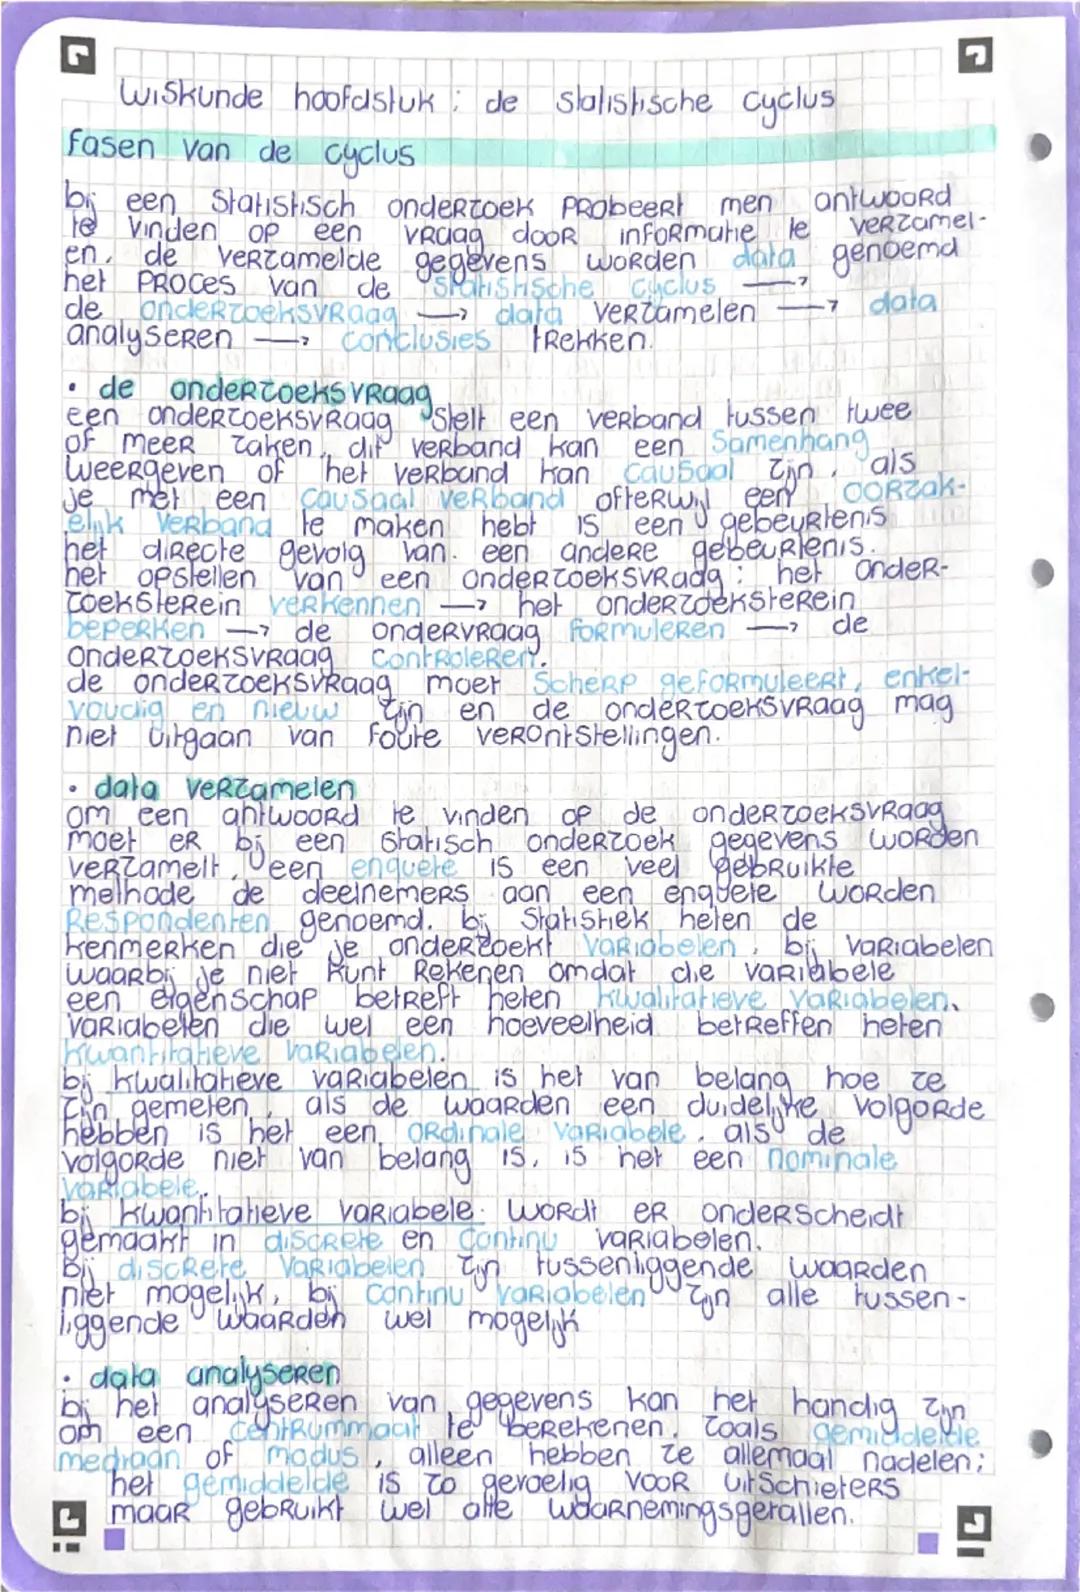 wiskunde hoofdstuk : de statistische cyclus
fasen van de cyclus
bij een statistisch onderzoek probeert men antwoord
te vinden op een vraag door informatie te verzamel-
en. de verzamelde gegevens worden data genoemd
het proces van de statistische cyclus →
de onderzoeksvraag → data verzamelen → data
analyseren → conclusies trekken.
• de onderzoeksvraag
een onderzoeksvraag stelt een verband tussen twee
of meer zaken, dit verband kan een samenhang
weergeven of het verband kan causaal zijn. als
je met een causaal verband ofterwijl een oorzak-
elijk verband te maken hebt is een gebeurtenis
het directe gevolg van een andere gebeurtenis.
het opstellen van een onderzoeksvraag : het onder-
zoeksterein verkennen → het onderzoeksterein
beperken → de ondervraag formuleren → de
onderzoeksvraag controleren.
de onderzoeksvraag moet scherp geformuleert, enkel-
voudig en nieuw zijn en de onderzoeksvraag mag
niet uitgaan van foute verontstellingen.
• data verzamelen
om een antwoord te vinden op de onderzoeksvraag
moet er bij een statisch onderzoek gegevens worden
verzamelt. een enquete is een veel gebruikte
methode de deelnemers aan een enquete worden
respondenten genoemd. bij statistiek heten de
kenmerken die je onderzoekt variabelen. bij variabelen
waarbij je niet kunt rekenen omdat die variabele
een eigenschap betreft heten kwalitatieve variabelen.
variabelen die wel een hoeveelheid betreffen heten
kwantitatieve variabelen.
bij kwalitatieve variabelen is het van belang hoe ze
zijn gemeten, als de waarden een duidelijke volgorde
hebben is het een ordinale variabele. als de
volgorde niet van belang is, is het een nominale
variabele.
bij kwantitatieve variabele wordt er onderscheidt
gemaakt in discrete en continu variabelen.
bij discrete variabelen zijn tussenliggende waarden
niet mogelijk, bij continu variabelen zijn alle tussen-
liggende waarden wel mogelijk
• data analyseren
bij het analyseren van gegevens kan het handig zijn
om een centrummaat te berekenen. zoals gemiddelde
mediaan of modus, alleen hebben ze allemaal nadelen;
het gemiddelde is zo gevoelig voor uitschieters
maar gebruikt wel alle waarnemingsgetallen.